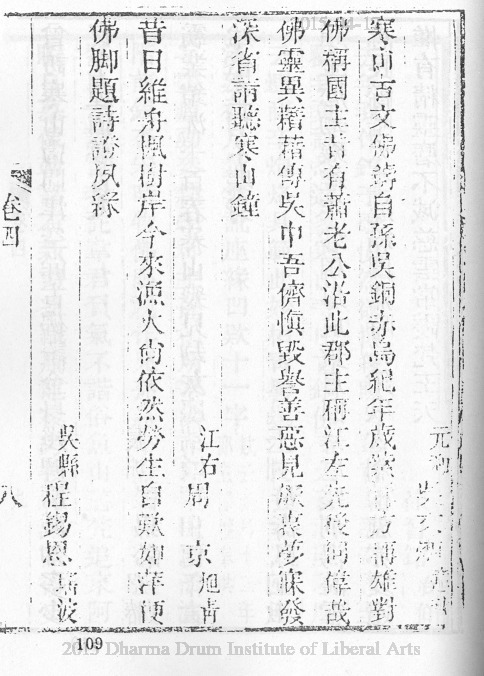 元和 吳
寒山古文佛鑄自孫吳銅赤烏紀年歲紫方稱雄對
佛稱國主昔有蕭老公沿此郡主稱江左先後何偉哉
佛靈異藉藉傳吳中吾儕愼毀譽善惡見厥衷夢寐發
深省請聽寒山鐘
江右周 京旭靑
昔日維舟楓樹岸今來漁火尙依然勞生自歎如萍
佛脚題詩證夙緣
吳縣程錫恩波
卷四 八
109
2015 Dharma Drum Institute of Liberal Arts